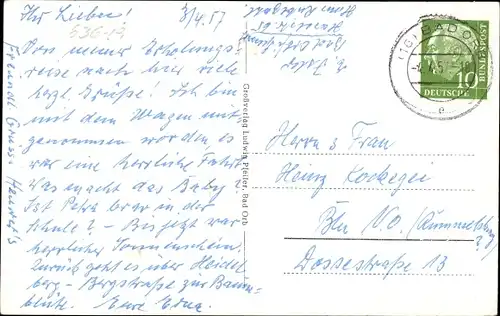 Ihr Lieben!
3/4.57
536-19
Von meiner Erholungs-
reise nach hier viele
herzl. Grüße! Ich bin
mit dem Wagen mit-
genommen worden, es
war eine herrliche Fahrt.
Was macht das Baby?
Ist Petra brav in der
Schule? - Bis jetzt war
herrlicher Sonnenschein.
Zurück geht es über Heidel-
berg - Bergstraße zur Baum-
blüte. Eure Edna.
Freundl. Grüsse
Großverlag Ludwig Pfeifer, Bad Orb
BAD ORB
e
10
DEUTSCHE
BUNDESPOST
Herrn u. Frau
Heinz
Bln N.O. (Rummelsburg
?)
Dossestraße 13